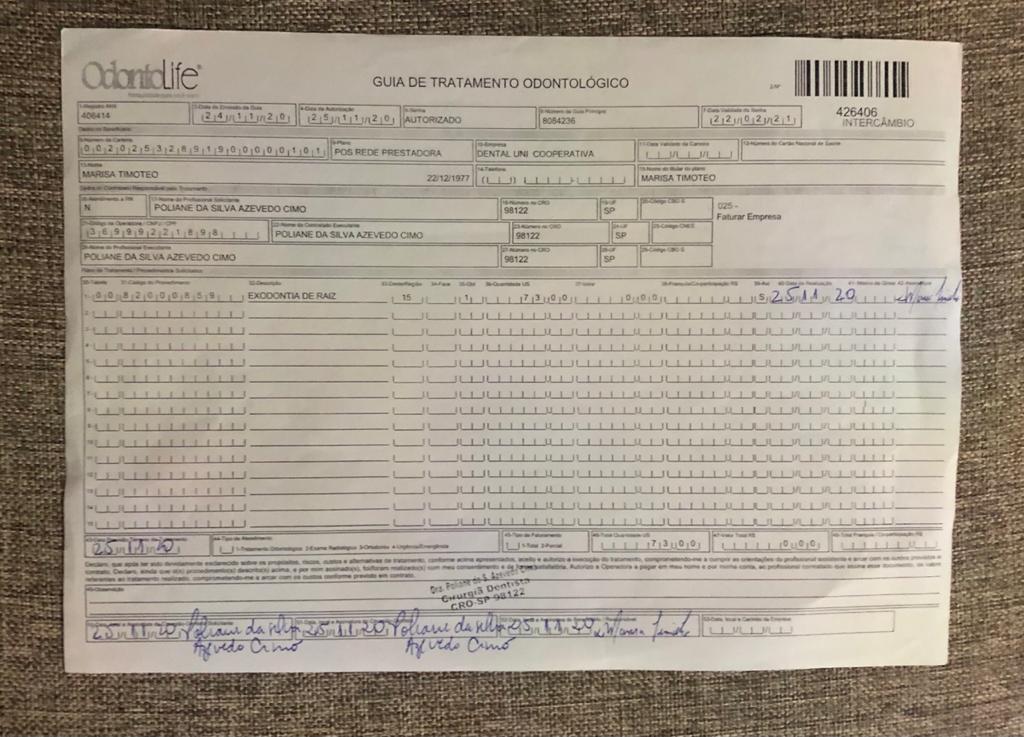 OdontoLife
GUIA DE TRATAMENTO ODONTOLÓGICO
2-Nº
426406
INTERCÂMBIO
1-Registro ANS 3-Data de Emissão da Guia 4-Data de Autorização 5-Senha 6-Número da Guia Principal 7-Data Validade da Senha
406414 24/11/20 25/11/20 AUTORIZADO 8084236 22/02/21
Dados do Beneficiário
8-Número da Carteira 9-Plano 10-Empresa 11-Data Validade da Carteira 12-Número do Cartão Nacional de Saúde
00202532891900000101 POS REDE PRESTADORA DENTAL UNI COOPERATIVA
13-Nome 14-Telefone 15-Nome do titular do plano
MARISA TIMOTEO 22/12/1977 MARISA TIMOTEO
Dados do Contratado Responsável pelo Tratamento
16-Atendimento a RN 17-Nome do Profissional Solicitante 18-Número no CRO 19-UF 20-Código CBO S
N POLIANE DA SILVA AZEVEDO CIMO 98122 SP
025 -
Faturar Empresa
21-Código na Operadora / CNPJ / CPF 22-Nome do Contratado Executante 23-Número no CRO 24-UF 25-Código CNES
36999221898 POLIANE DA SILVA AZEVEDO CIMO 98122 SP
26-Nome do Profissional Executante 27-Número no CRO 28-UF 29-Código CBO S
POLIANE DA SILVA AZEVEDO CIMO 98122 SP
Plano de Tratamento / Procedimentos Solicitados
30-Tabela 31-Código do Procedimento 32-Descrição 33-Dente/Região 34-Face 35-Qtd 36-Quantidade US 37-Valor 38-Franquia/Co-participação R$ 39-Aut 40-Data de Realização 42-Assinatura
1- 00 82000859 EXODONTIA DE RAIZ 15 1 73,00 0,00 S 25/11/20
2-
3-
4-
5-
6-
7-
8-
9-
10-
11-
12-
13-
14-
15-
44-Tipo de Atendimento 45-Tipo de Faturamento 46-Total Quantidade US 47-Valor Total R$ 48-Total Franquia / Co-participação R$
25/11/20 1-Tratamento Odontológico 2-Exame Radiológico 3-Ortodontia 4-Urgência/Emergência 1-Total 2-Parcial 73,00 0,00
Declaro, que após ter sido devidamente esclarecido sobre os propósitos, riscos, custos e alternativas de tratamento, conforme acima apresentados, aceito e autorizo a execução do tratamento, comprometendo-me a cumprir as orientações do profissional
contratado. Declaro, ainda que o(s) procedimento(s) descrito(s) acima, e por mim assinado(s), foi/foram realizado(s) com meu consentimento e de forma satisfatória. Autorizo a Operadora a pagar em meu nome e por minha conta, ao profissional contratado que assina esse documento, os valores
referentes ao tratamento realizado, comprometendo-me a arcar com os custos conforme previsto em contrato.
49-Observação
Dra. Poliane de S. Azevedo
Cirurgiã Dentista
CRO-SP 98122
53-Data, local e Carimbo da Empresa
25/11/20 Poliane da Silva 25/11/20 Poliane da Silva 25/11/20 Marisa Timoteo
Azevedo Cimo Azevedo Cimo